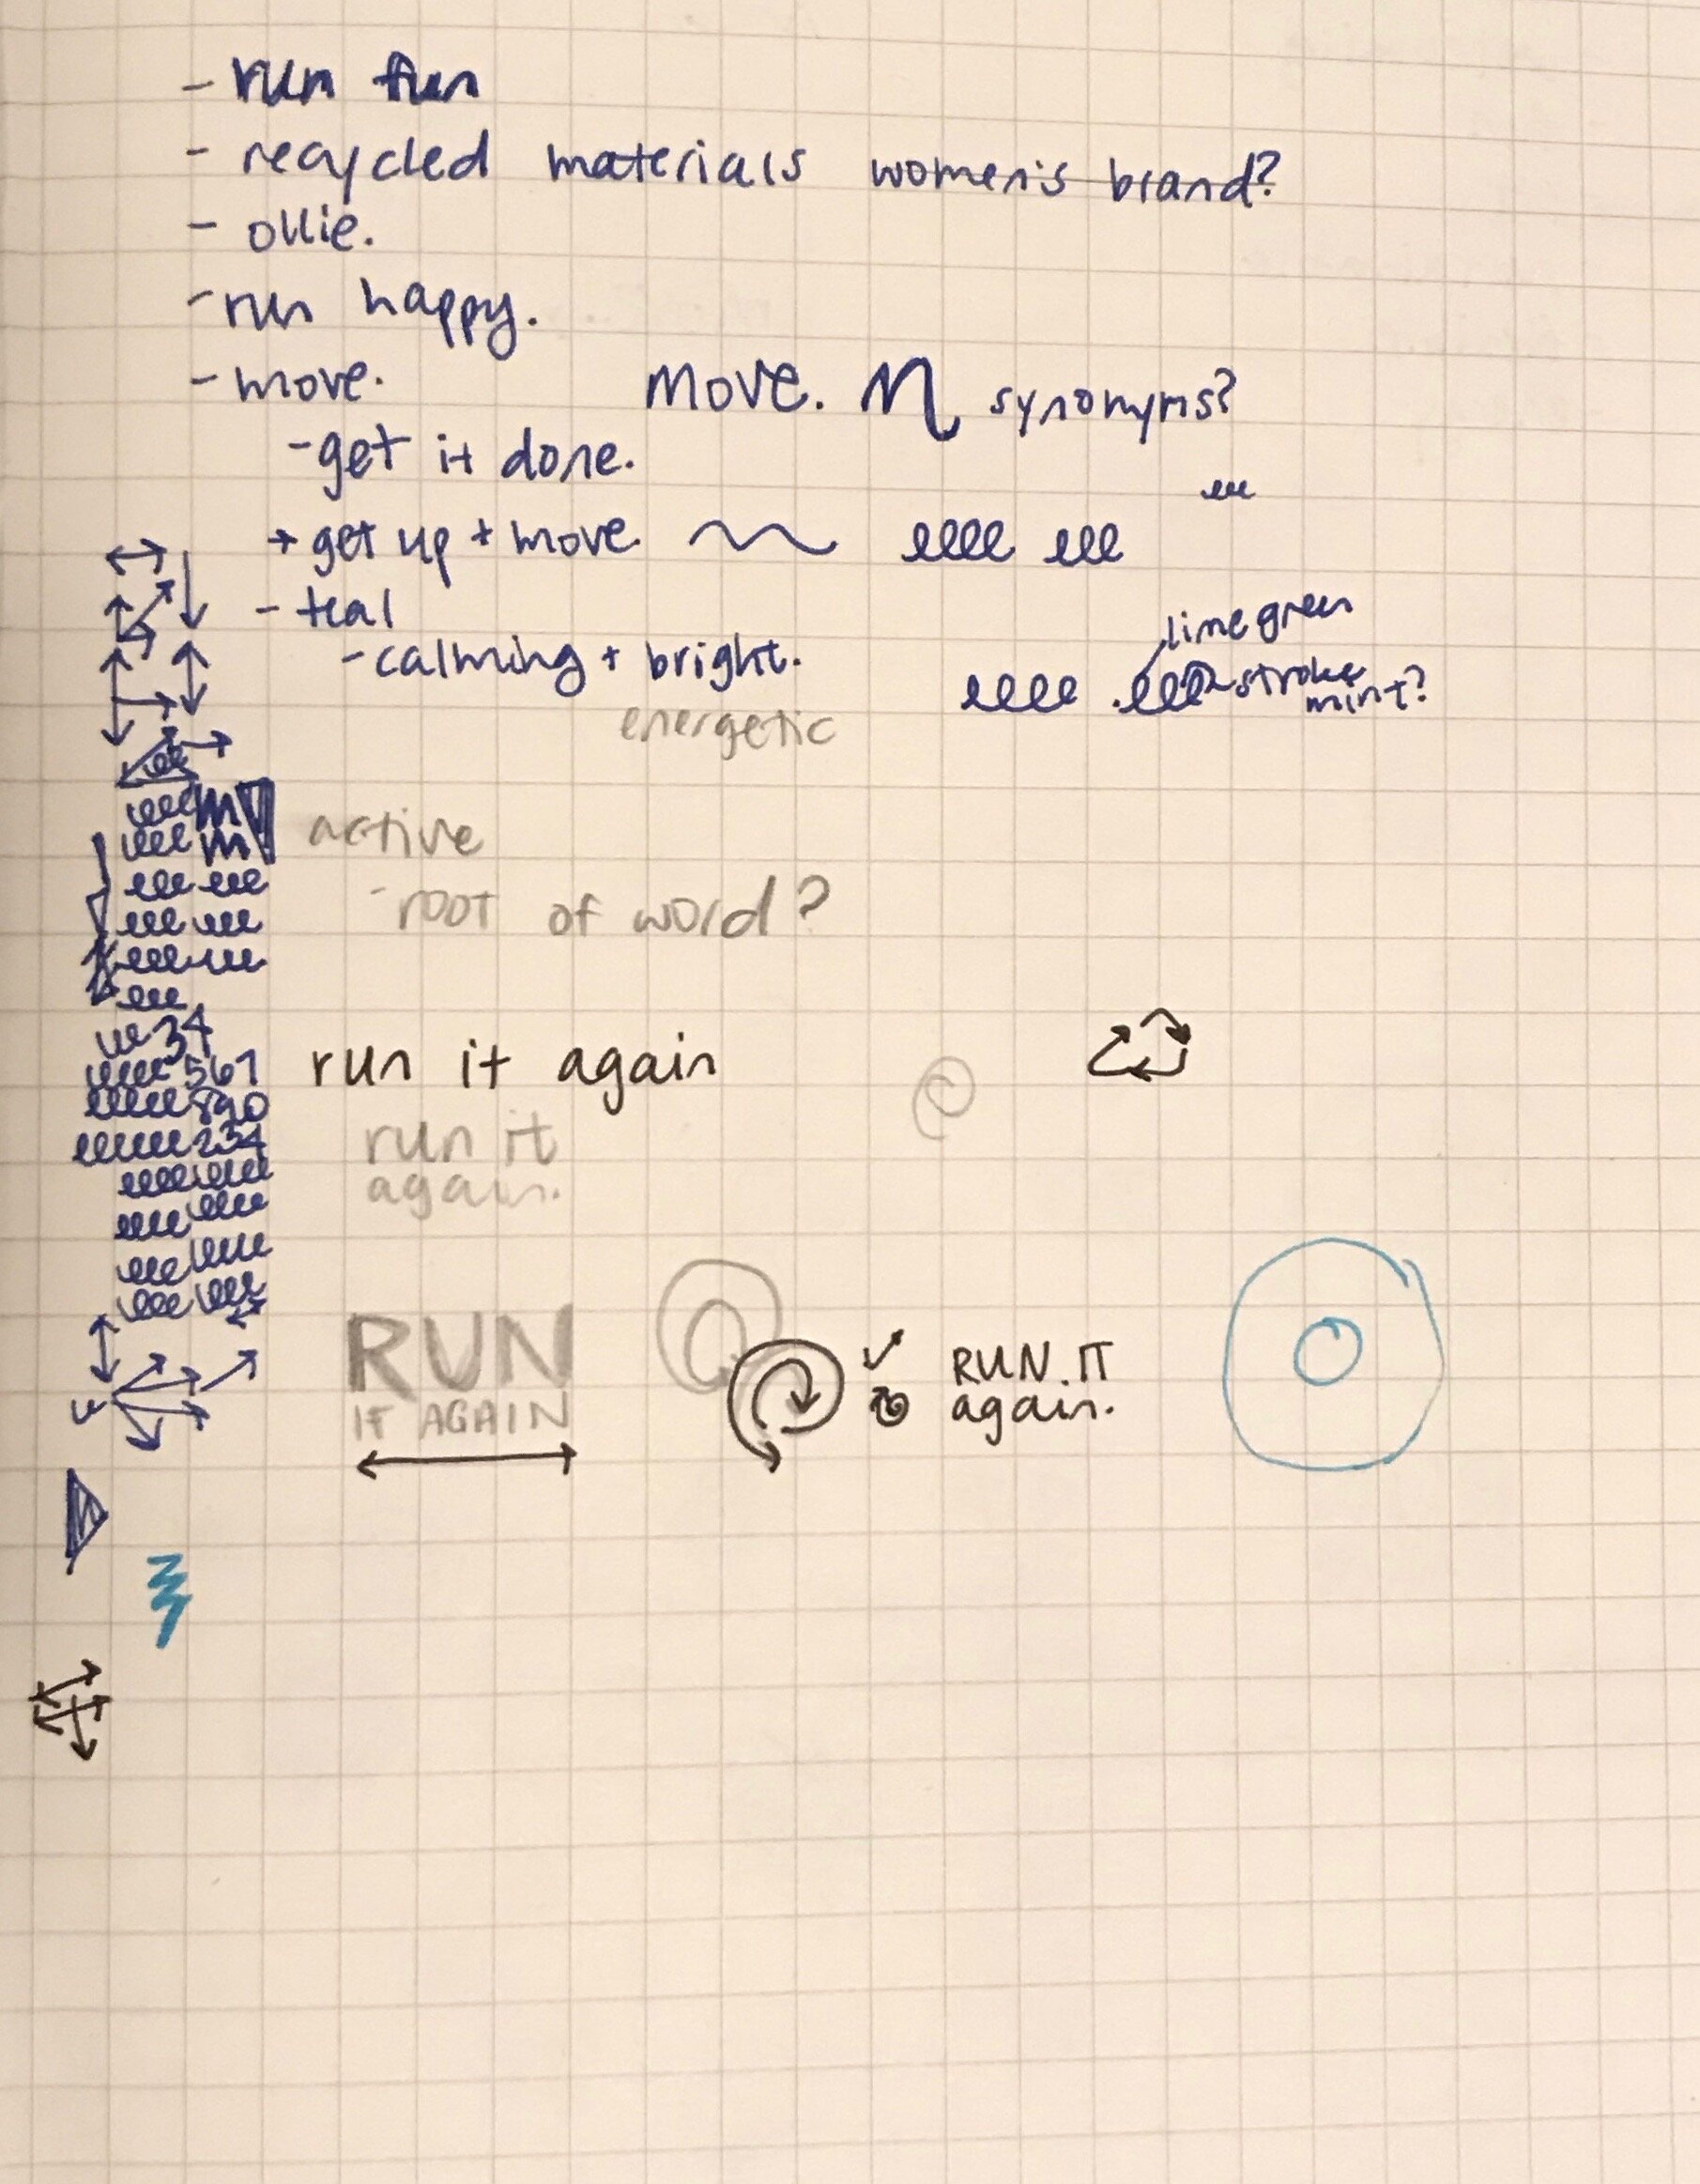 - run fun
- recycled materials women's brand?
- ollie.
- run happy.
- move. move. M synonyms?
- get it done.
→ get up + move
- teal
lime green
- calming + bright.
stroke
mint?
energetic
active
- root of word?
34
567
890
234
run it again
run it
again.
RUN
IT AGAIN
RUN.IT
again.